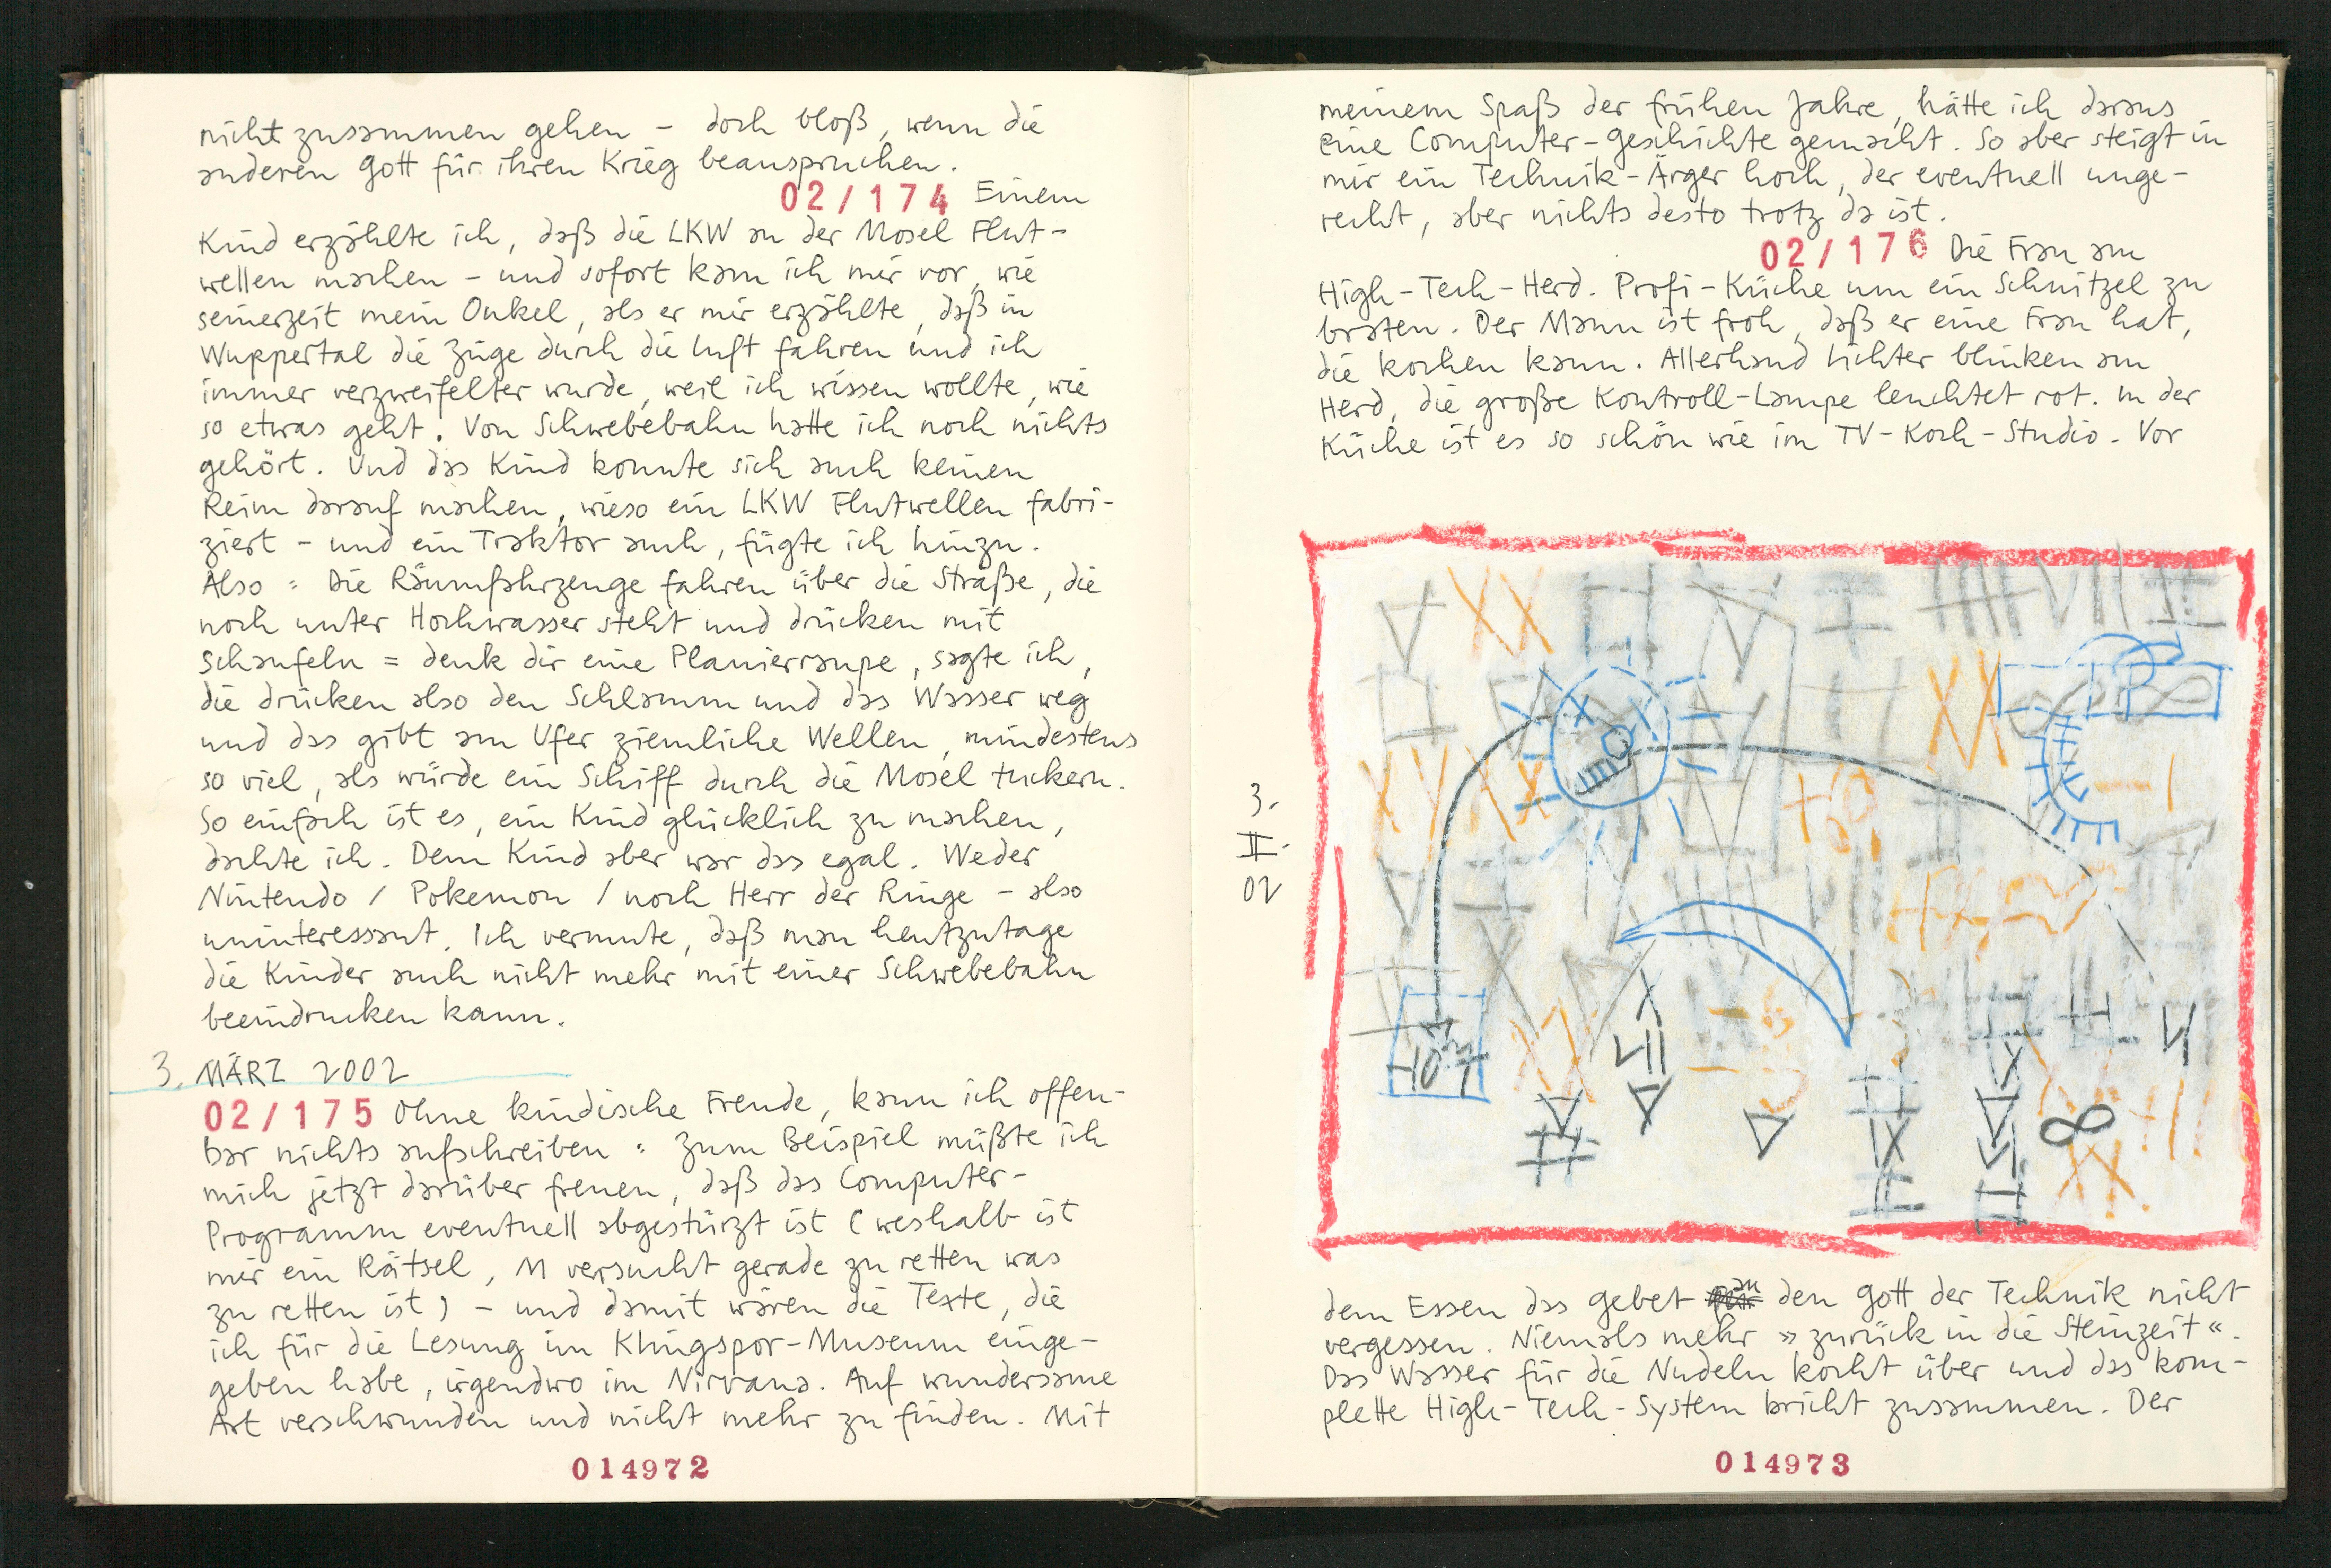 nicht zusammen gehen – doch bloß, wenn die
anderen Gott für ihren Krieg beanspruchen.
02/174 Einem
Kind erzählte ich, daß die LKW an der Mosel Flut-
wellen machen – und sofort kam ich mir vor, wie
seinerzeit mein Onkel, als er mir erzählte, daß in
Wuppertal die Züge durch die Luft fahren und ich
immer verzweifelter wurde, weil ich wissen wollte, wie
so etwas geht. Von Schwebebahn hatte ich noch nichts
gehört. Und das Kind konnte sich auch keinen
Reim darauf machen, wieso ein LKW Flutwellen fabri-
ziert – und ein Traktor auch, fügte ich hinzu.
Also : Die Räumfahrzeuge fahren über die Straße, die
noch unter Hochwasser steht und drücken mit
Schaufeln = denk dir eine Planierraupe, sagte ich,
die drücken also den Schlamm und das Wasser weg
und das gibt am Ufer ziemliche Wellen, mindestens
so viel, als würde ein Schiff durch die Mosel tuckern.
So einfach ist es, ein Kind glücklich zu machen,
dachte ich. Dem Kind aber war das egal. Weder
Nintendo / Pokemon / noch Herr der Ringe – also
uninteressant. Ich vermute, daß man heutzutage
die Kinder auch nicht mehr mit einer Schwebebahn
beeindrucken kann.
3. MÄRZ 2002
02/175 Ohne kindische Freude, kann ich offen-
bar nichts aufschreiben : Zum Beispiel müßte ich
mich jetzt darüber freuen, daß das Computer-
Programm eventuell abgestürzt ist (weshalb ist
mir ein Rätsel, M versucht gerade zu retten was
zu retten ist) – und damit wären die Texte, die
ich für die Lesung im Klingspor-Museum einge-
geben habe, irgendwo im Nirvana. Auf wundersame
Art verschwunden und nicht mehr zu finden. Mit
014972
meinem Spaß der frühen Jahre, hätte ich daraus
eine Computer-Geschichte gemacht. So aber steigt in
mir ein Technik-Ärger hoch, der eventuell unge-
recht, aber nichts desto trotz da ist.
02/176 Die Frau am
High-Tech-Herd. Profi-Küche um ein Schnitzel zu
braten. Der Mann ist froh, daß er eine Frau hat,
die kochen kann. Allerhand Lichter blinken am
Herd, die große Kontroll-Lampe leuchtet rot. In der
Küche ist es so schön wie im TV-Koch-Studio. Vor
3.
II.
02
dem Essen das Gebet an den Gott der Technik nicht
vergessen. Niemals mehr »zurück in die Steinzeit«.
Das Wasser für die Nudeln kocht über und das kom-
plette High-Tech-System bricht zusammen. Der
014973